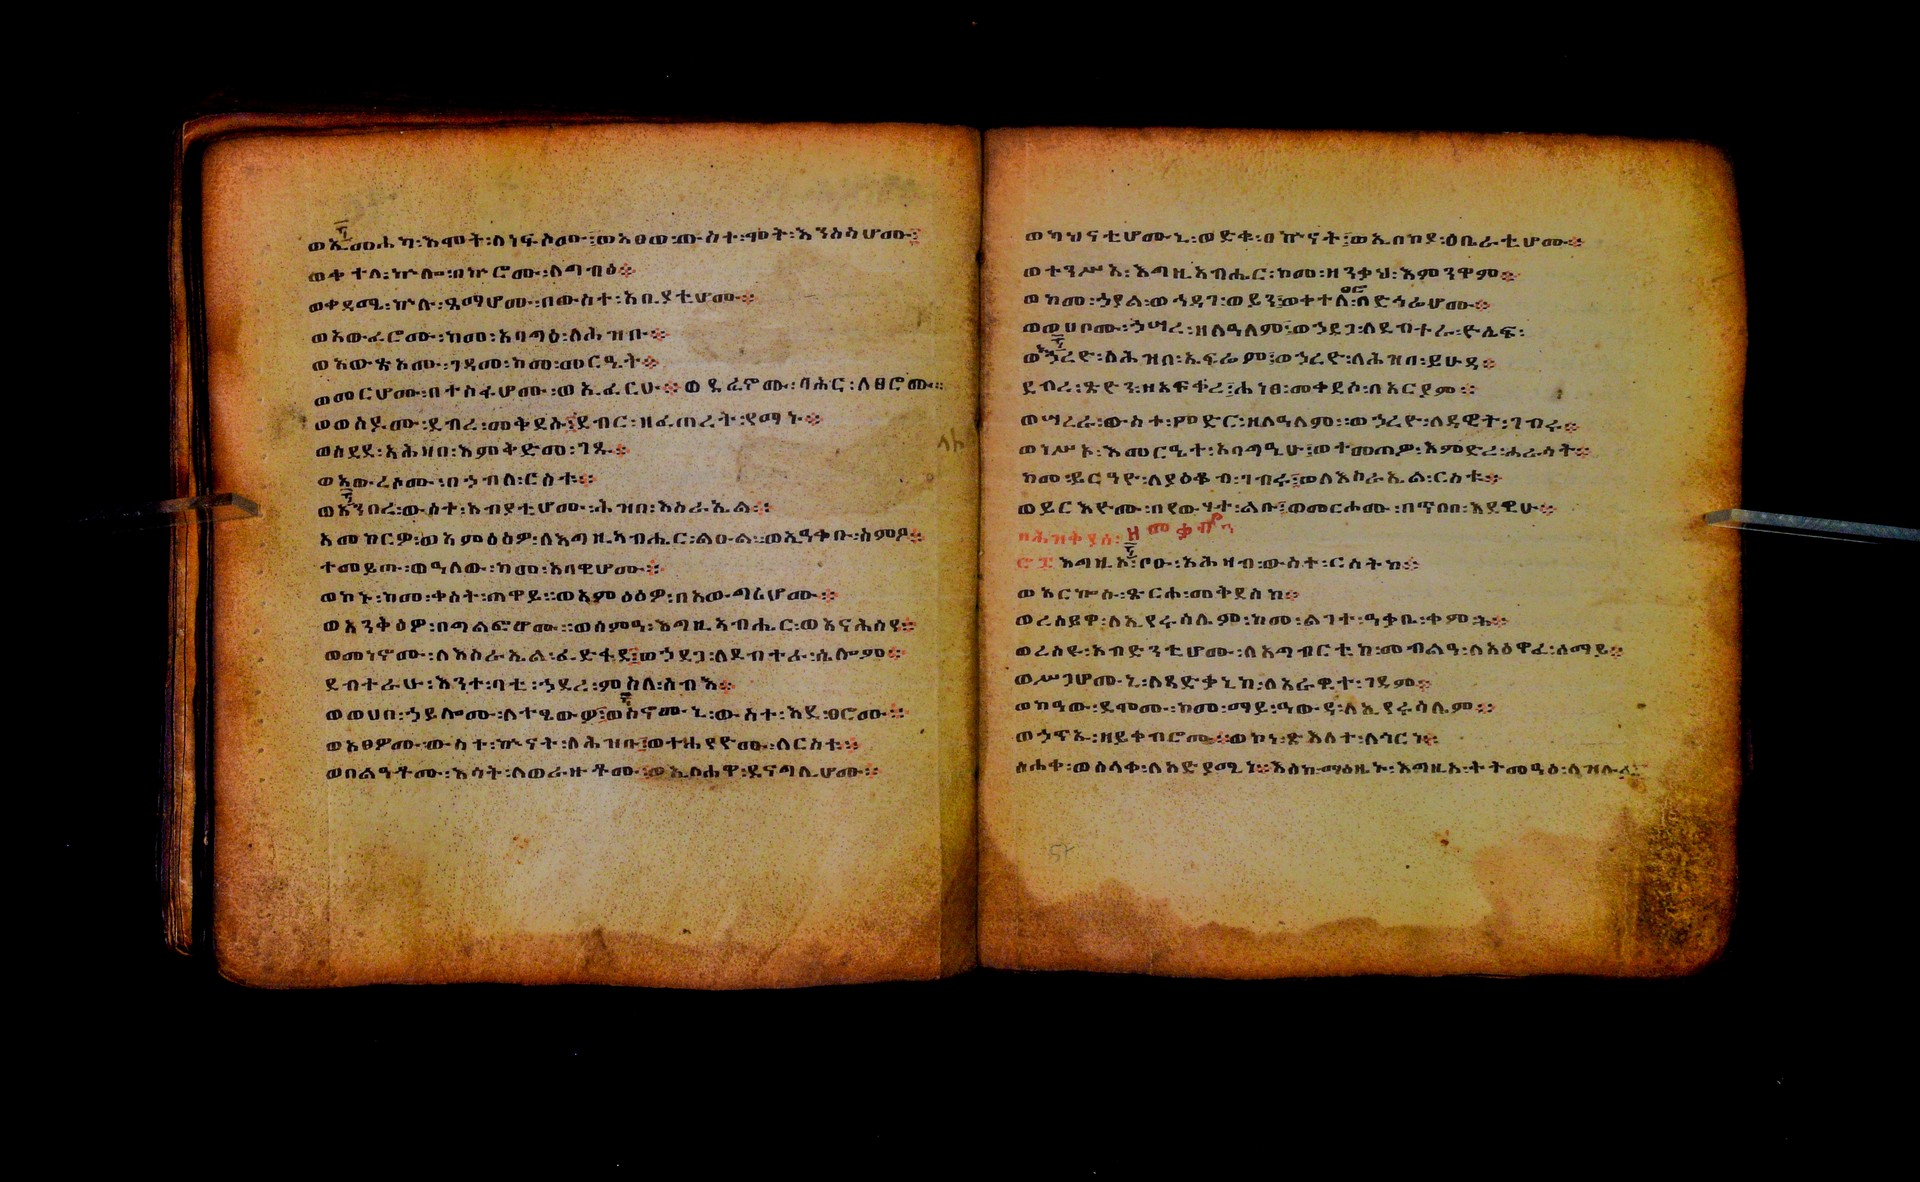 ወኢመሐካ፡እሞት፡ለነፍሶሙ፡ወአፀወ፡ውስተ፡ሞት፡እንስሳሆሙ።
ወቀተለ፡ኵሎ፡በኵሮሙ፡ለግብፅ።
ወቀዳሜ፡ኵሉ፡ጻማሆሙ፡በውስተ፡አቢያቲሆሙ።
ወአውፈሮሙ፡ከመ፡አባግዕ፡ለሕዝቡ።
ወአውፅአሙ፡ገዳመ፡ከመ፡መርዔት።
ወመርሆሙ፡በተስፋሆሙ፡ወኢፈርሁ።ወደፈኖሙ፡ባሕር፡ለፀሮሙ።
ወወሰዶሙ፡ደብረ፡መቅደሱ፤ደብር፡ዘፈጠረት፡የማኑ።
ወሰደደ፡አሕዛበ፡እምቅድመ፡ገጹ።
ወአውረሶሙ፡በኀብለ፡ርስቱ።
ወአንበረ፡ውስተ፡አብያቲሆሙ፡ሕዝበ፡እስራኤል።
አመከርዎ፡ወአምዕዕዎ፡ለእግዚአብሔር፡ልዑል።ወኢዓቀቡ፡ስምዖ።
ተመይጡ፡ወዓለው፡ከመ፡አባዊሆሙ።
ወኮኑ፡ከመ፡ቀስት፡ጠዋይ።ወአምዕዕዎ፡በአውግሪሆሙ።
ወአንቅዕዎ፡በግልፎሆሙ።ወሰምዓ፡እግዚአብሔር፡ወአናሕሰየ።
ወመነኖሙ፡ለእስራኤል፡ፈድፋደ፤ወኀደጋ፡ለደብተራ፡ሴሎም።
ደብተራሁ፡እንተ፡ባቲ፡ኀደረ፡ምስለ፡ሰብእ።
ወወሀበ፡ኀይሎሙ፡ለተፄውዎ፤ወስኖሙኒ፡ውስተ፡እደ፡ፀሮሙ።
ወአፀዎሙ፡ውስተ፡ኵናት፡ለሕዝቡ፤ወተሐየዮሙ፡ለርስቱ።
ወበልዓቶሙ፡እሳት፡ለወራዙቶሙ፤ወኢላሐዋ፡ደናግሊሆሙ።
ወካህናቲሆሙኒ፡ወድቁ፡በኵናት፤ወኢበከያ፡ዕቤራቲሆሙ።
ወተንሥአ፡እግዚአብሔር፡ከመ፡ዘንቃህ፡እምንዋም።
ወከመ፡ኃያል፡ወኅዳገ፡ወይን፤ወቀተለ፡ፀሮ፡በድኅሬሆሙ።
ወወሀቦሙ፡ኀሣረ፡ዘለዓለም፤ወኀደጋ፡ለደብተራ፡ዮሴፍ፡
ወኢኀረዮ፡ለሕዝበ፡ኤፍሬም፤ወኀረዮ፡ለሕዝበ፡ይሁዳ።
ደብረ፡ጽዮን፡ዘአፍቀረ፤ሐነፀ፡መቅደሶ፡በአርያም።
ወሣረራ፡ውስተ፡ምድር፡ዘለዓለም።ወኀረዮ፡ለዳዊት፡ገብሩ።
ወነሥኦ፡እመርዔተ፡አባግዒሁ፤ወተመጠዎ፡እምድኅረ፡ሐራሳት።
ከመ፡ይርዓዮ፡ለያዕቆብ፡ገብሩ፤ወለእስራኤል፡ርስቱ።
ወይርእዮሙ፡በየውሃተ፡ልቡ፤ወመርሖሙ፡በጥበበ፡እደዊሁ።
ዘሕዝቅያስ፡ዘመቃብያን
እግዚኦ፡ቦኡ፡አሕዛብ፡ውስተ፡ርስትከ።
ወአርኰሱ፡ጽርሐ፡መቅደስከ።
ወረሰይዋ፡ለኢየሩሳሌም፡ከመ፡ልገተ፡ዓቃቤ፡ቀምሕ።
ወረሰዩ፡አብድንቲሆሙ፡ለአግብርቲከ፡መብልዓ፡ለአዕዋፈ፡ሰማይ።
ወሥጋሆሙኒ፡ለጻድቃኒከ፡ለአራዊተ፡ገዳም።
ወከዓው፡ደሞሙ፡ከመ፡ማይ፡ዓውዳ፡ለኢየሩሳሌም።
ወኀጥኡ፡ዘይቀብሮሙ።ወኮነ፡ጽእለተ፡ለጎርነ።
ስሐቀ፡ወስላቀ፡ለአድያሚነ።እስከ፡ማዕዜኑ፡እግዚኦ፡ትትመዓዕ፡ለዝሉፉ።
57